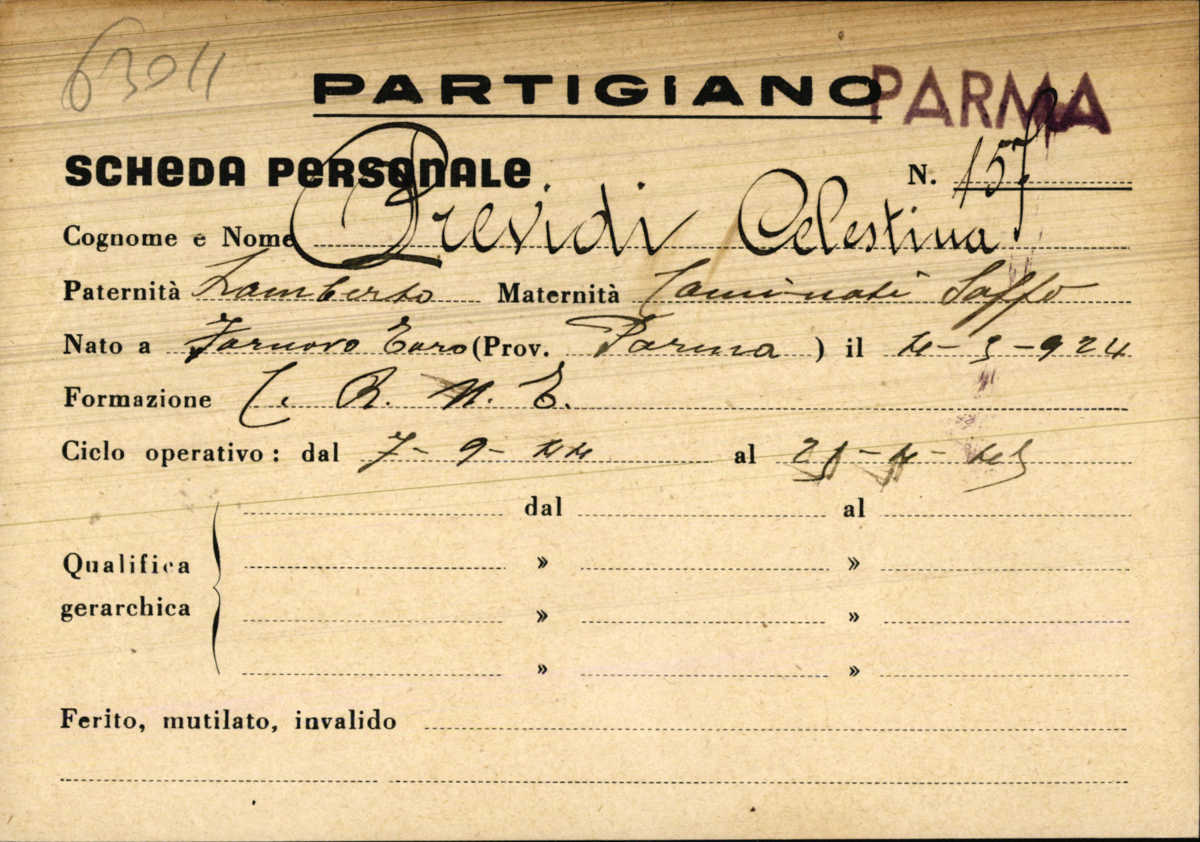 63011
PARTIGIANO PARMA
SCHEDA PERSONALE N. 157
Cognome e Nome Previdi Celestina
Paternità Lamberto Maternità Caminati Saffo
Nato a Fornovo Taro (Prov. Parma) il 4-3-924
Formazione C. R. N. E.
Ciclo operativo: dal 7-9-44 al 25-4-45
dal al
Qualifica » »
gerarchica » »
» »
Ferito, mutilato, invalido